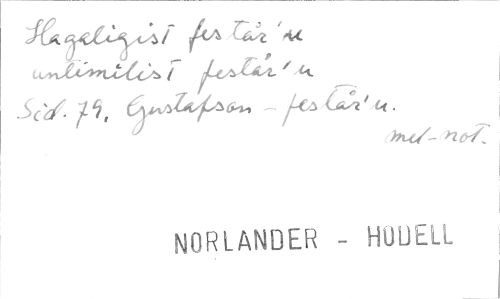 Hagaligist festår'u
unlimilist festår'u
Sid. 79. Gustafson - festår'u.
mel-not.
NORLANDER - HODELL